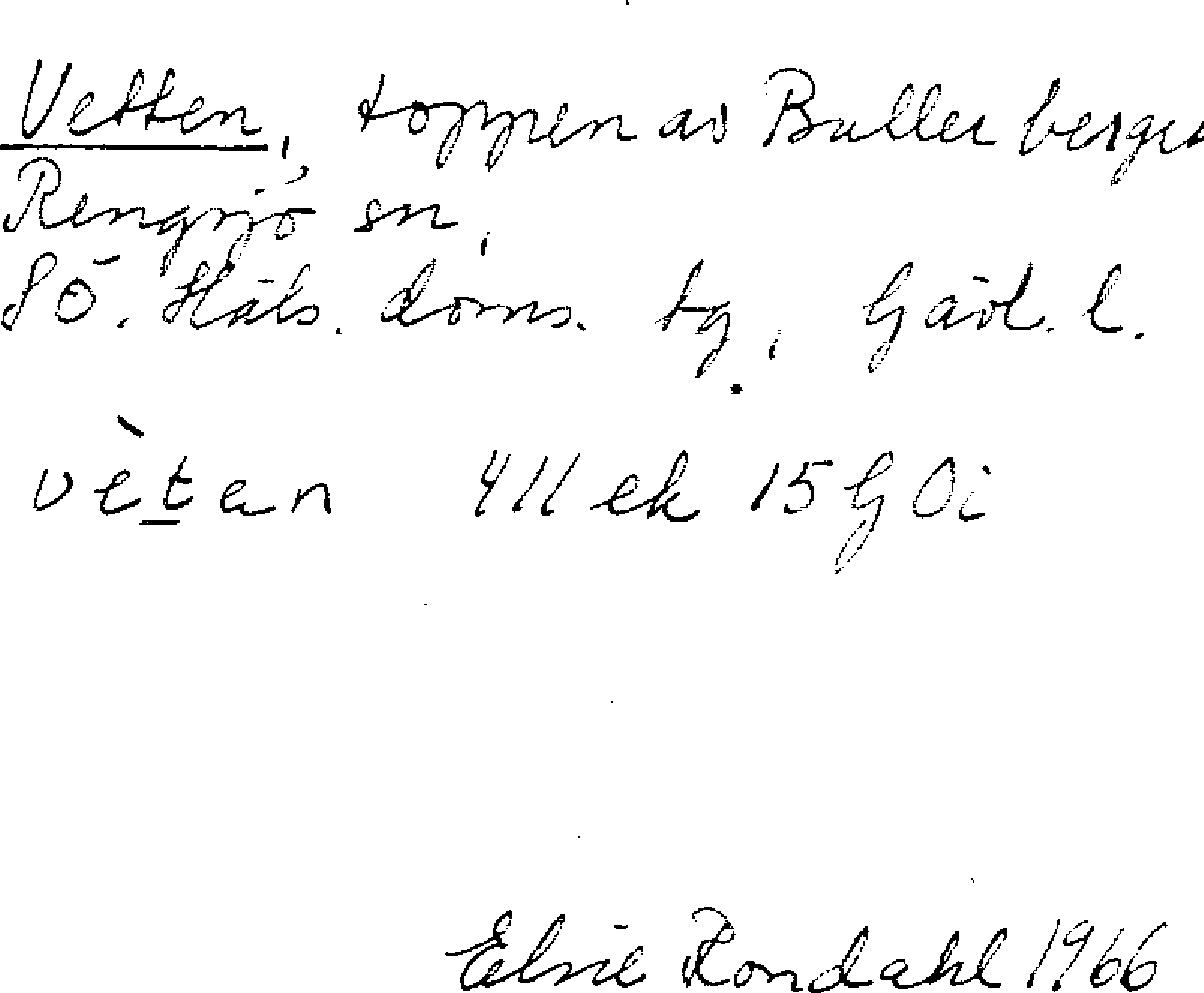 Vetten, toppen av Buller berget
Rengsjö sn,
SÖ. Häls. doms. tg, Gävl. l.
vètan 4 11 ek 15 G 0i
Elsie Rondahl 1966